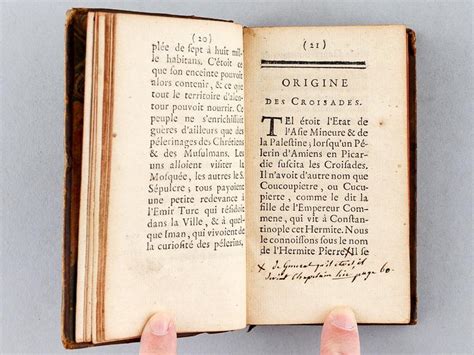 (20)
plée de sept à huit mil-
le habitans. C'étoit ce
que son enceinte pouvoit
alors contenir, & ce que
tout le territoire d'alen-
tour pouvoit nourrir. Ce
peuple ne s'enrichissoit
guères d'ailleurs que des
pélerinages des Chrétiens
& des Musulmans. Les
uns alloient visiter la
Mosquée, les autres le S.
Sépulcre; tous payoient
une petite redevance à
l'Emir Turc qui résidoit
dans la Ville, & à quel-
que Iman, qui vivoit de
la curiosité des pélerins.
(21)
ORIGINE
DES CROISADES.
TEl étoit l'Etat de
l'Asie Mineure & de
la Palestine; lorsqu'un Pé-
lerin d'Amiens en Picar-
die suscita les Croisades.
Il n'avoit d'autre nom que
Coucoupietre, ou Cucu-
pietre, comme le dit la
fille de l'Empereur Com-
mene, qui vit à Constan-
tinople cet Hermite. Nous
le connoissons sous le nom
de l'Hermite Pierre. Il se
x de General qu'il étoit, il
devint Chapelain page 60.